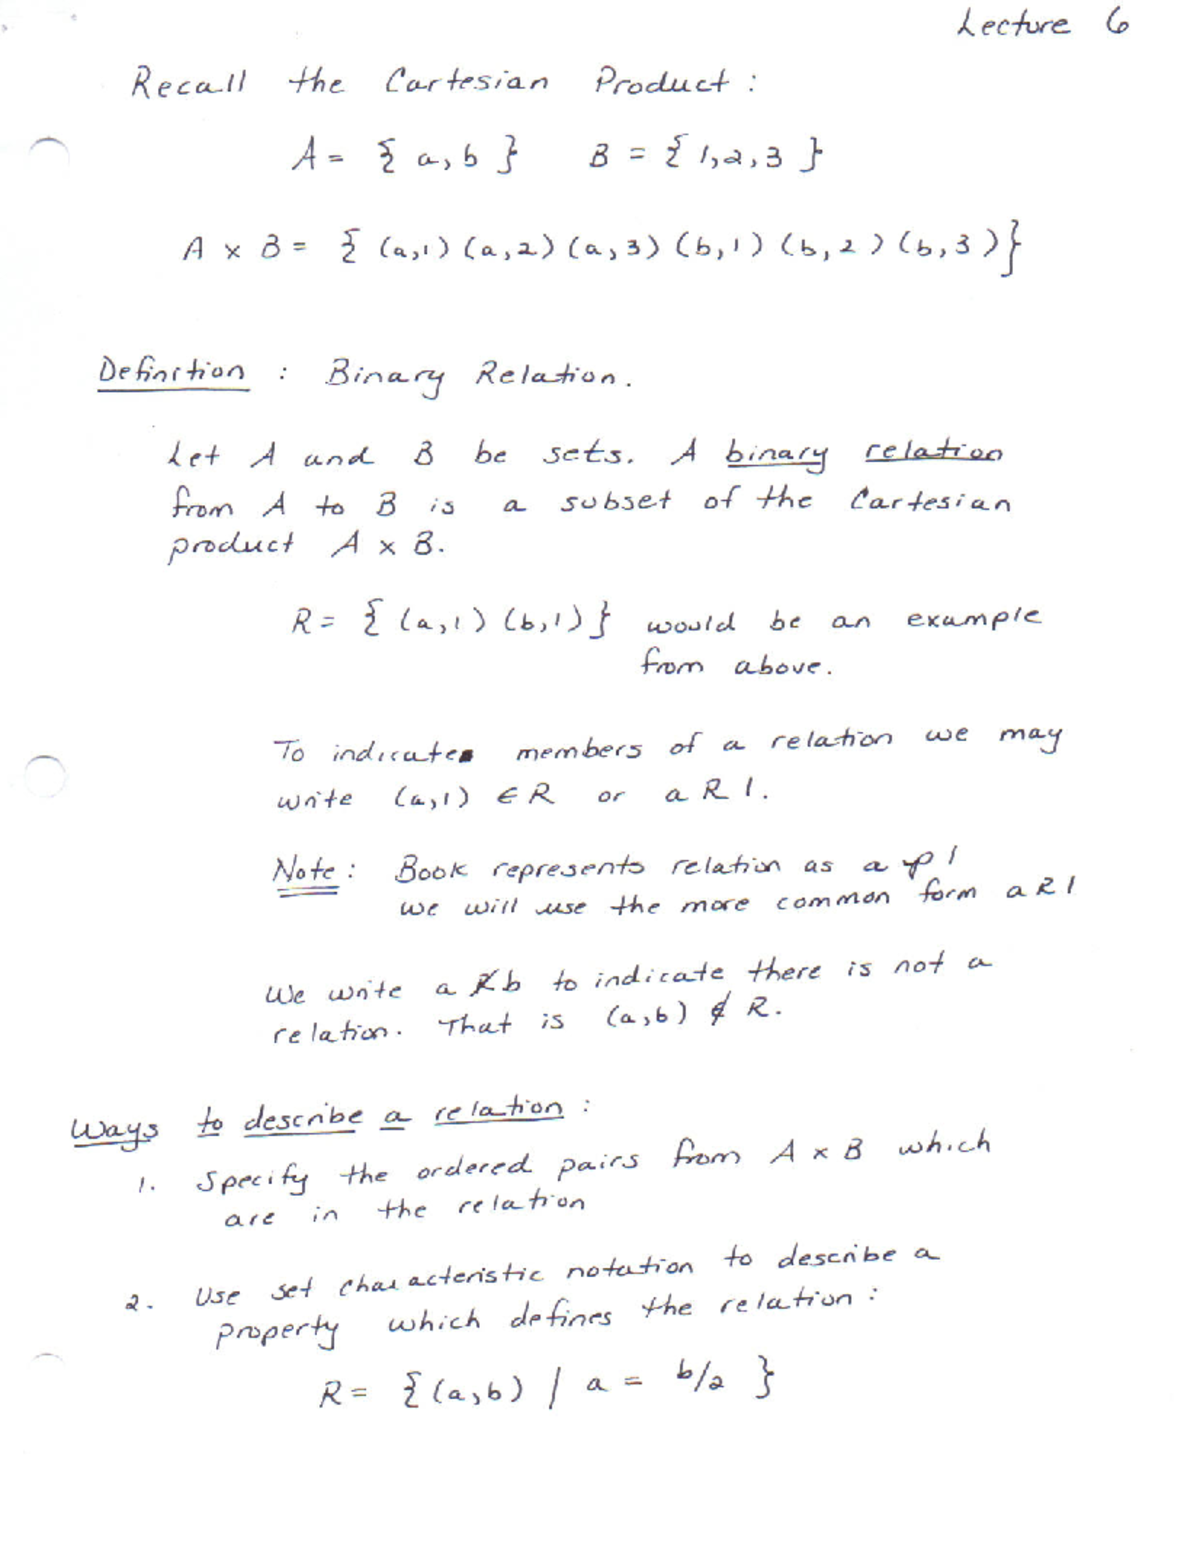 Lecture 6
Recall the Cartesian Product :
A = { a, b }   B = { 1, 2, 3 }
A × B = { (a,1) (a,2) (a,3) (b,1) (b,2) (b,3) }
Definition : Binary Relation.
Let A and B be sets. A binary relation
from A to B is a subset of the Cartesian
product A × B.
R = { (a,1) (b,1) } would be an example
from above.
To indicate members of a relation we may
write (a,1) ∈ R or a R 1.
Note : Book represents relation as a ρ 1
we will use the more common form a R 1
We write a R̸ b to indicate there is not a
relation. That is (a,b) ∉ R.
Ways to describe a relation :
1. Specify the ordered pairs from A × B which
are in the relation
2. Use set characteristic notation to describe a
property which defines the relation :
R = { (a,b) | a = b/2 }